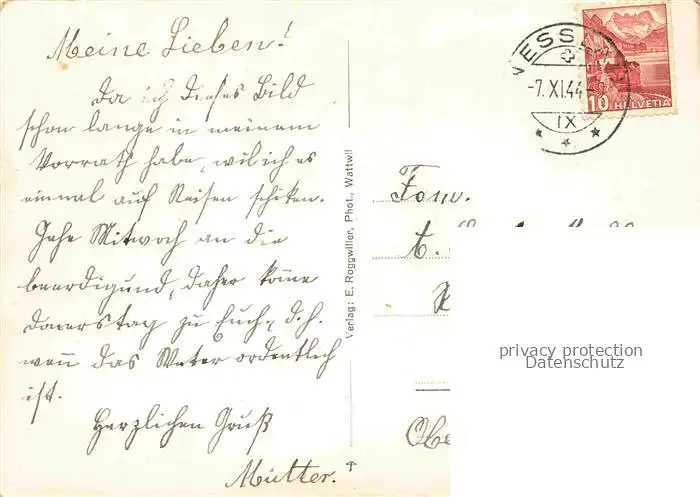 Meine Lieben!
Da ich dieses Bild
schon lange in meinem
Vorrath habe, wil ich es
einmal auf Reisen schiken.
Gehe Mitwoch an die
beerdigund, daher kome
Donerstag zu Euch, d.h.
wen das Weter ordentlich
ist.
Herzlichen Gruß
Mutter.
Verlag: E. Roggwiller, Phot., Wattwil
NESSLAU
-7.XI.44
IX
10 HELVETIA
Fam.
privacy protection
Datenschutz